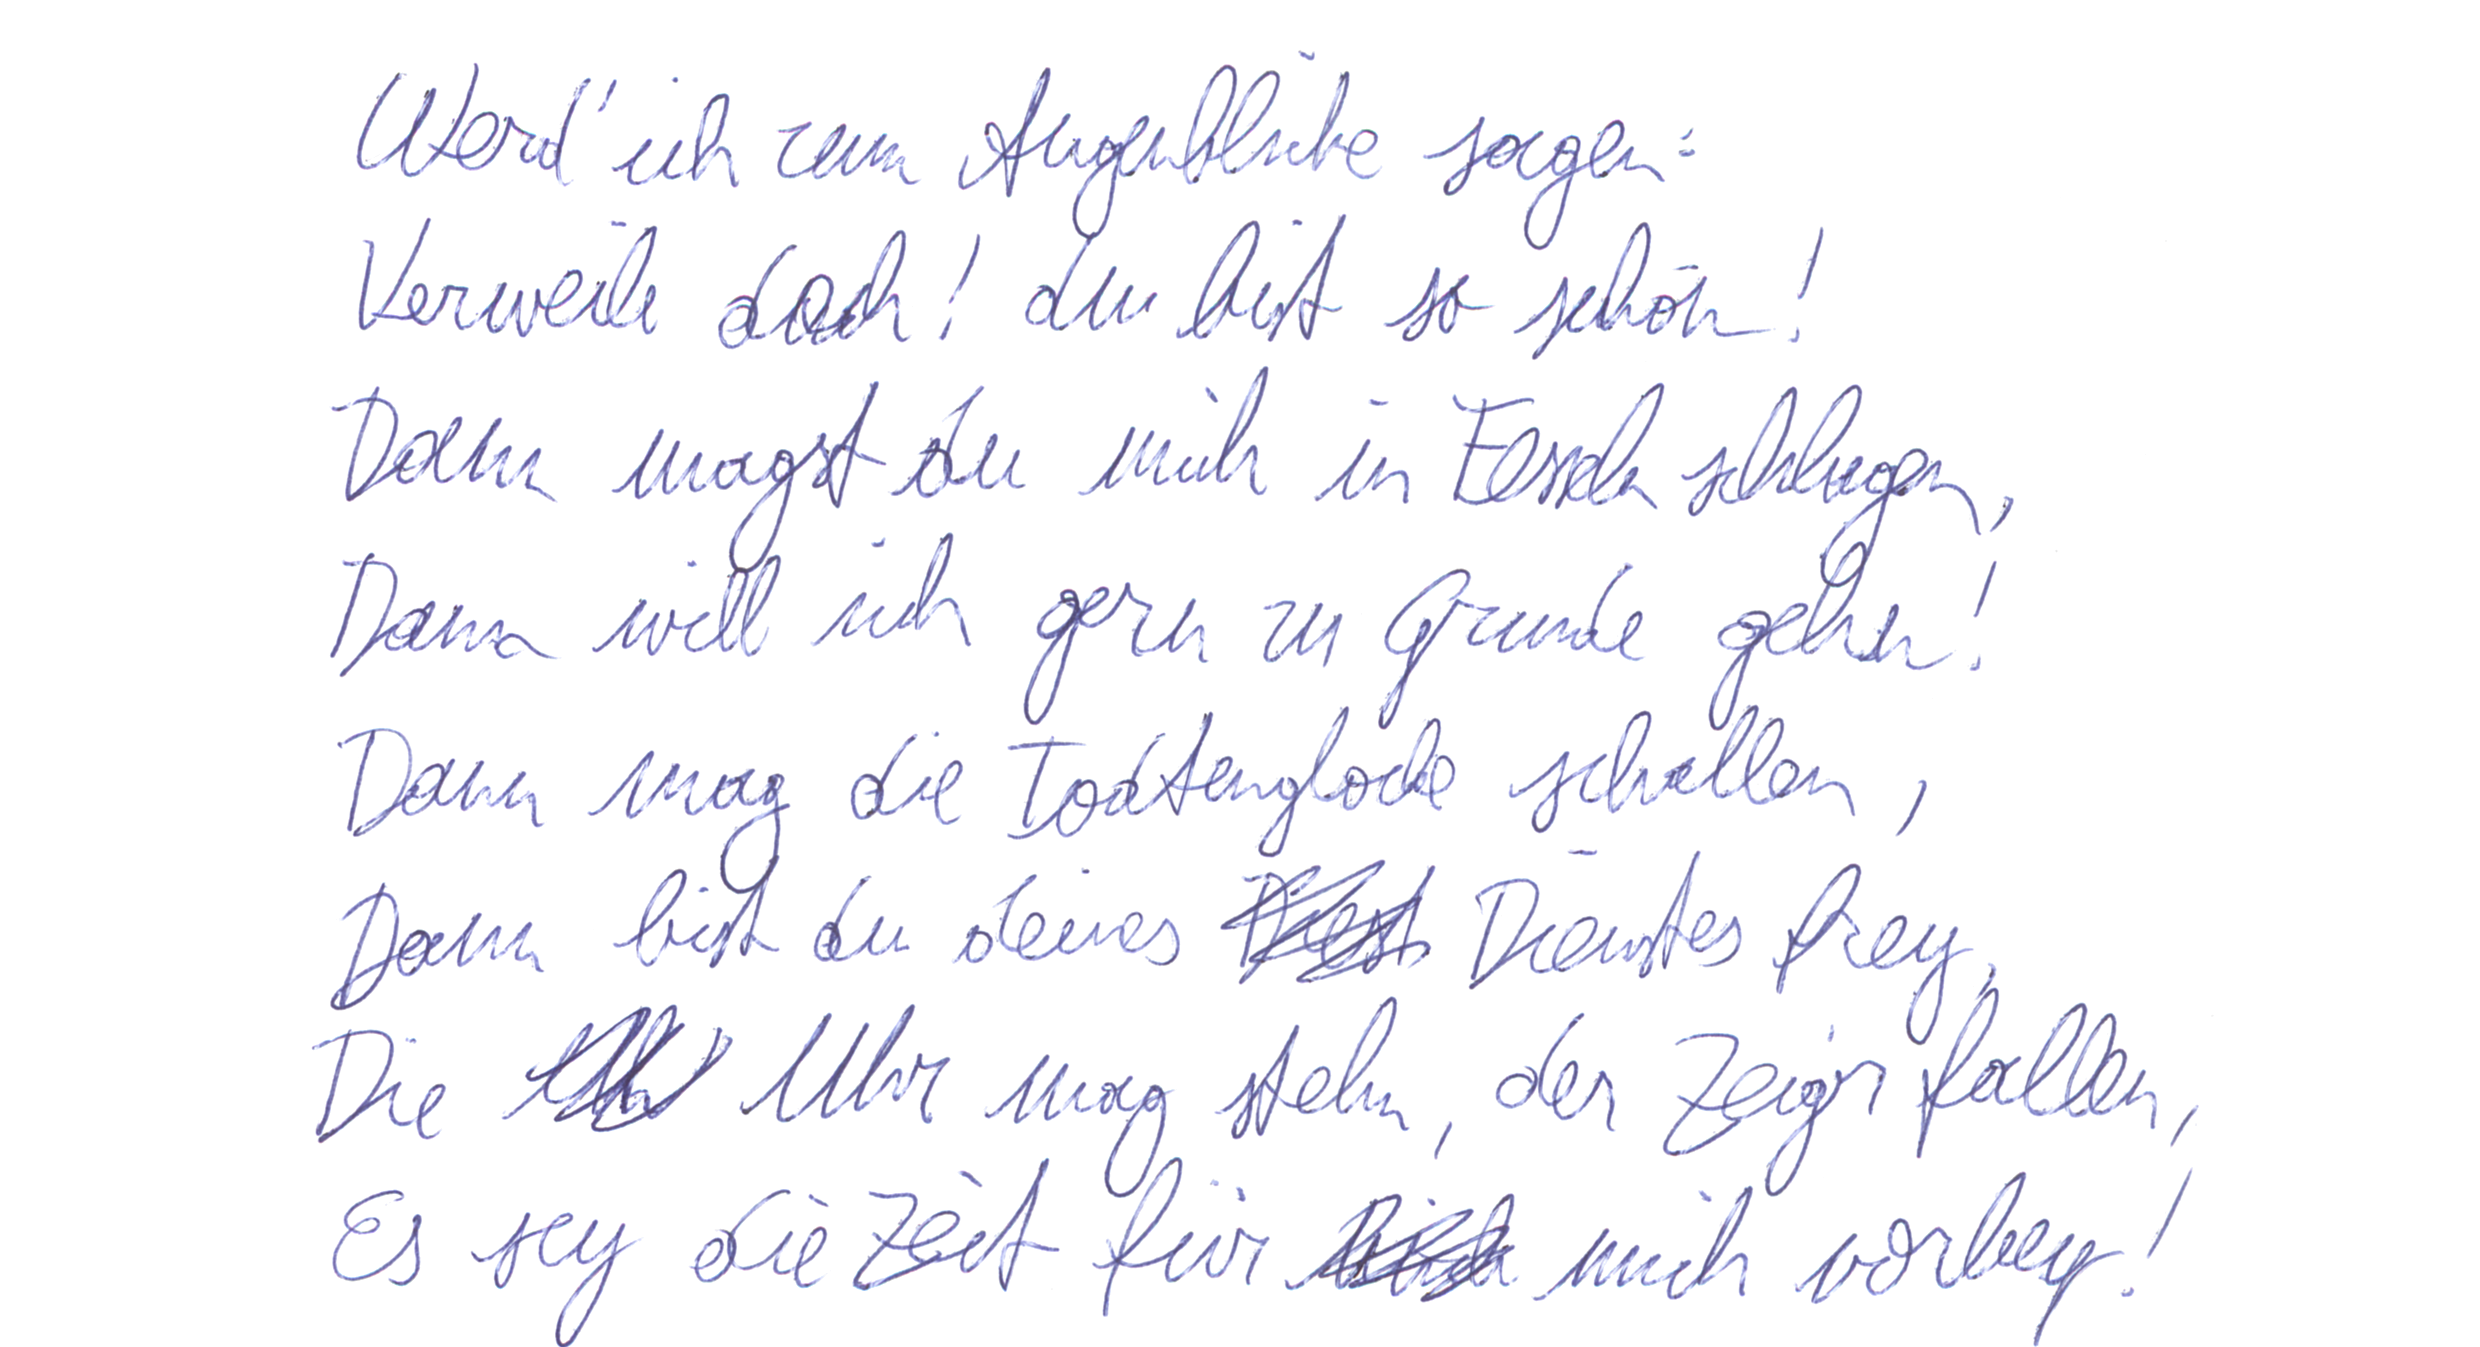 Werd' ich zum Augenblicke sagen:
Verweile doch! du bist so schön!
Dann magst du mich in Fesseln schlagen,
Dann will ich gern zu Grunde gehen!
Dann mag die Todtenglocke schallen,
Dann bist du deines Dienstes frey,
Die Uhr mag stehn, der Zeigr fallen,
Es sey die Zeit für mich vorbey!